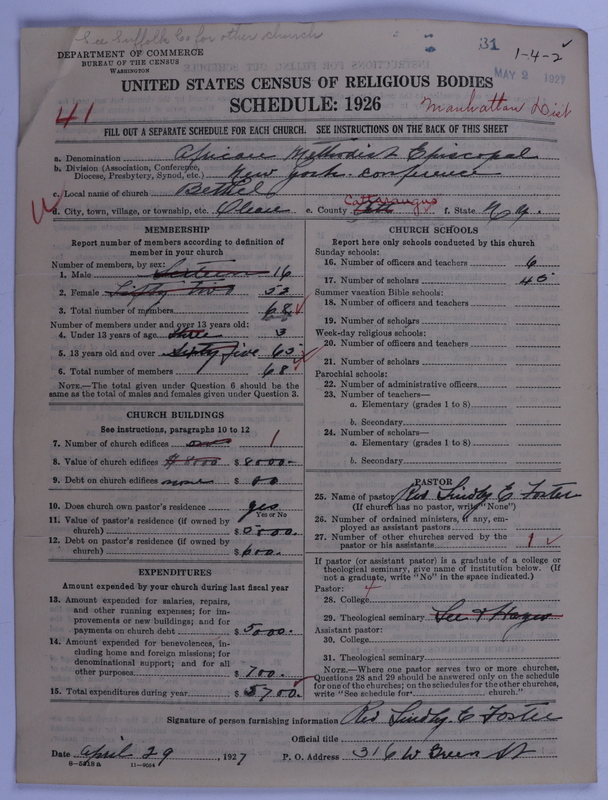 See Suffolk Co for other church
31
1-4-2
DEPARTMENT OF COMMERCE
BUREAU OF THE CENSUS
WASHINGTON
MAY 2 1927
UNITED STATES CENSUS OF RELIGIOUS BODIES
SCHEDULE: 1926
41
Manhattan Dist
FILL OUT A SEPARATE SCHEDULE FOR EACH CHURCH. SEE INSTRUCTIONS ON THE BACK OF THIS SHEET
a. Denomination African Methodist Episcopal
b. Division (Association, Conference, Diocese, Presbytery, Synod, etc.) New York conference
c. Local name of church Bethel
d. City, town, village, or township, etc. Olean e. County Cattaraugus f. State N.Y.
MEMBERSHIP
Report number of members according to definition of member in your church
Number of members, by sex:
1. Male Sixteen 16
2. Female Fifty two 52
3. Total number of members 68
Number of members under and over 13 years old:
4. Under 13 years of age three 3
5. 13 years old and over Sixty five 65
6. Total number of members 68
NOTE.—The total given under Question 6 should be the same as the total of males and females given under Question 3.
CHURCH BUILDINGS
See instructions, paragraphs 10 to 12
7. Number of church edifices one 1
8. Value of church edifices $8000 $ 8000-
9. Debt on church edifices none $ 00
10. Does church own pastor's residence yes
Yes or No
11. Value of pastor's residence (if owned by church) $ 5000.
12. Debt on pastor's residence (if owned by church) $ 600.
EXPENDITURES
Amount expended by your church during last fiscal year
13. Amount expended for salaries, repairs, and other running expenses; for improvements or new buildings; and for payments on church debt $ 5000.
14. Amount expended for benevolences, including home and foreign missions; for denominational support; and for all other purposes $ 700.
15. Total expenditures during year $ 5700.
CHURCH SCHOOLS
Report here only schools conducted by this church
Sunday schools:
16. Number of officers and teachers 6
17. Number of scholars 45
Summer vacation Bible schools:
18. Number of officers and teachers
19. Number of scholars
Week-day religious schools:
20. Number of officers and teachers
21. Number of scholars
Parochial schools:
22. Number of administrative officers
23. Number of teachers—
a. Elementary (grades 1 to 8)
b. Secondary
24. Number of scholars—
a. Elementary (grades 1 to 8)
b. Secondary
PASTOR
25. Name of pastor Rev Lindsy E Foster
(If church has no pastor, write "None")
26. Number of ordained ministers, if any, employed as assistant pastors
27. Number of other churches served by the pastor or his assistants 1
If pastor (or assistant pastor) is a graduate of a college or theological seminary, give name of institution below. (If not a graduate, write "No" in the space indicated.)
Pastor:
28. College
29. Theological seminary
Assistant pastor:
30. College
31. Theological seminary
NOTE.—Where one pastor serves two or more churches, Questions 28 and 29 should be answered only on the schedule for one of the churches; on the schedules for the other churches, write "See schedule for church."
Signature of person furnishing information Rev Lindsy. E Foster
Official title
Date April 29, 1927 P. O. Address 316 W Green St
8-5319a 11-9054